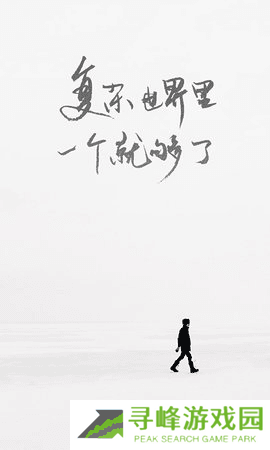 复杂世界里
一个就够了
寻峰游戏园
PEAK SEARCH GAME PARK